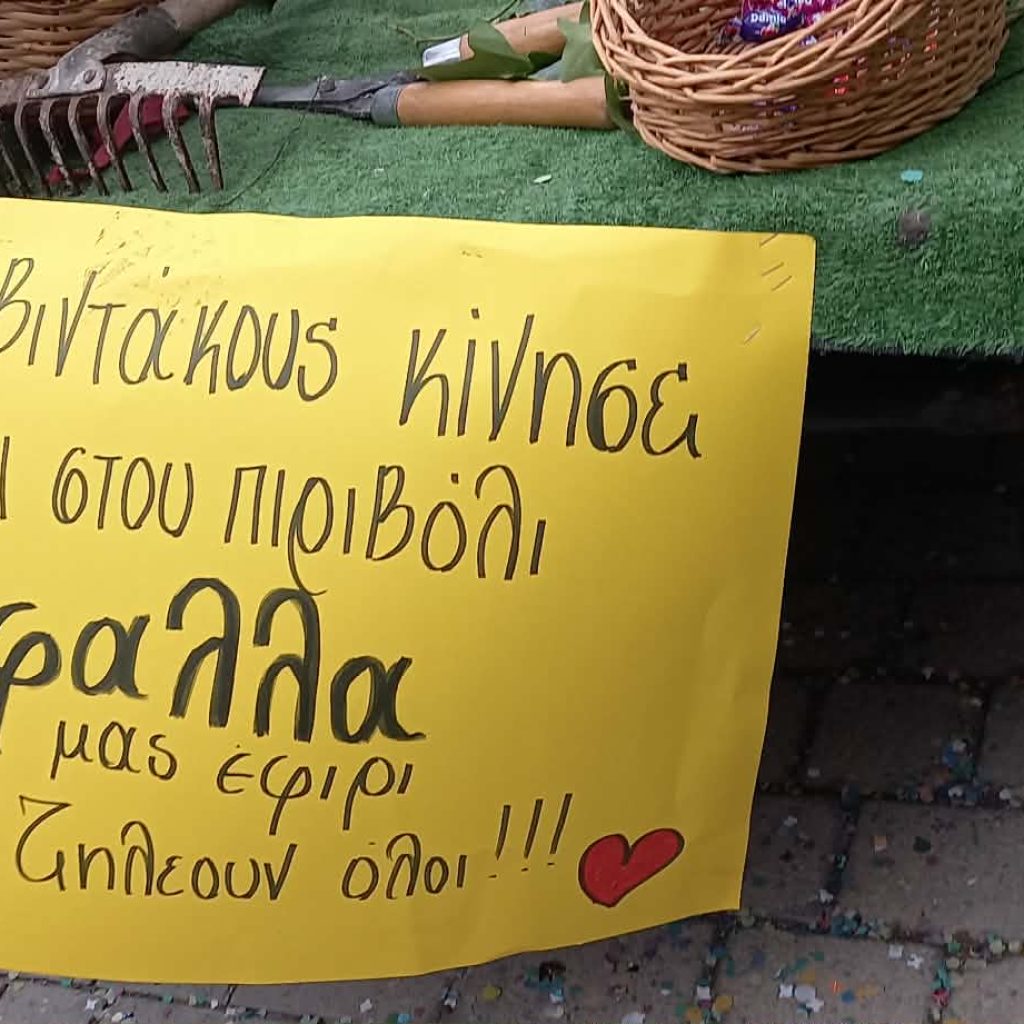 βιντάκους κίνησε
στου πιριβόλι
φαλλα
μας έφιρι
ζηλεουν όλοι!!!